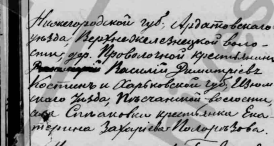 Нижегородской губ. Ардатовского
уѣзда Верхнежелезницкой воло-
сти, дер. Проволочной крестьянин
Василий Димитріев
Костин и Харьковской губ. Изюм-
скаго Уѣзда, Песчанской волости,
крестьянка Ека-
терина Захаріева